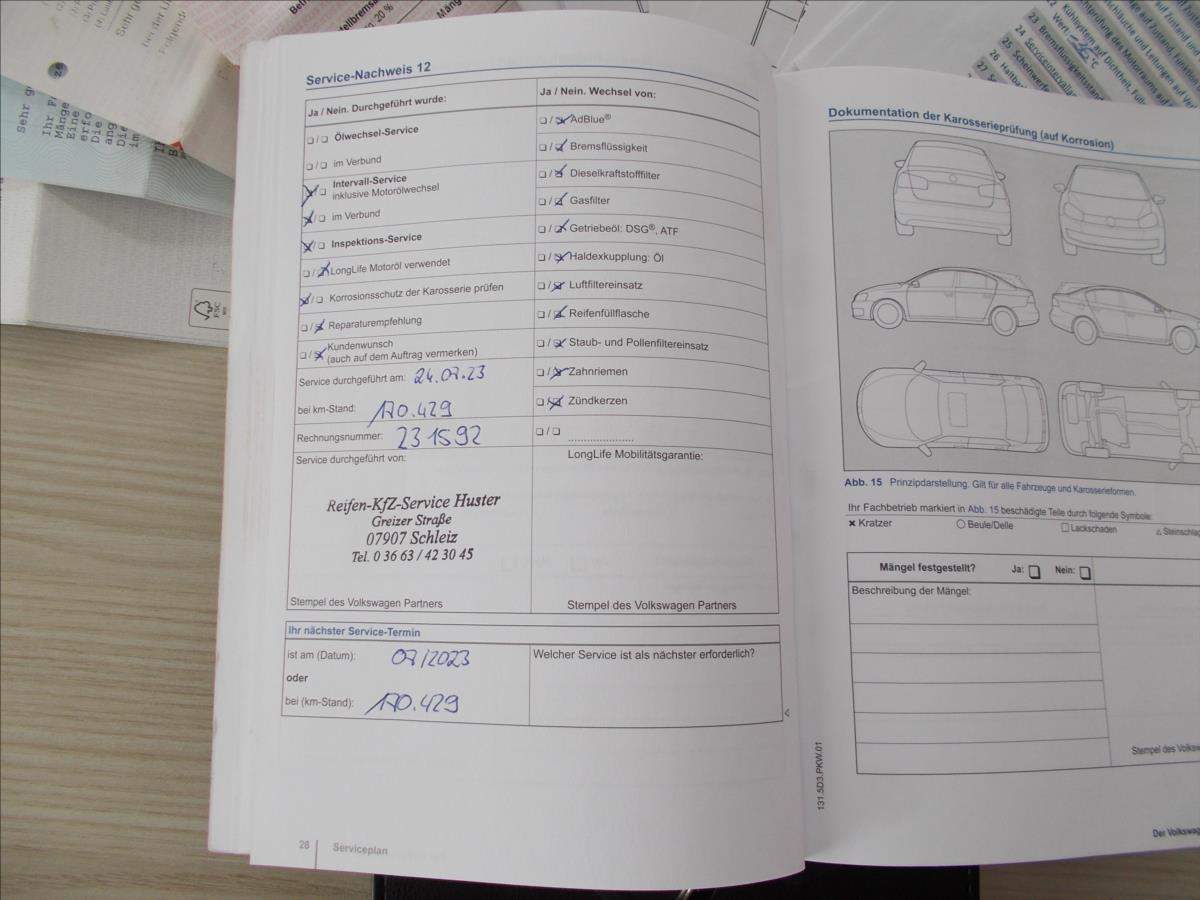 Service-Nachweis 12
Ja / Nein. Durchgeführt wurde:
❏/❏ Ölwechsel-Service
❏/❏ im Verbund
☒/❏ Intervall-Service
inklusive Motorölwechsel
☒/❏ im Verbund
☒/❏ Inspektions-Service
❏/☒ LongLife Motoröl verwendet
☒/❏ Korrosionsschutz der Karosserie prüfen
❏/☒ Reparaturempfehlung
❏/☒ Kundenwunsch
(auch auf dem Auftrag vermerken)
Service durchgeführt am: 24.07.23
bei km-Stand: 170.429
Rechnungsnummer: 231592
Service durchgeführt von:
Reifen-KfZ-Service Huster
Greizer Straße
07907 Schleiz
Tel. 0 36 63 / 42 30 45
Stempel des Volkswagen Partners
Ja / Nein. Wechsel von:
❏/☒ AdBlue®
❏/☒ Bremsflüssigkeit
❏/☒ Dieselkraftstofffilter
❏/☒ Gasfilter
❏/☒ Getriebeöl: DSG®, ATF
❏/☒ Haldexkupplung: Öl
❏/☒ Luftfiltereinsatz
❏/☒ Reifenfüllflasche
❏/☒ Staub- und Pollenfiltereinsatz
❏/☒ Zahnriemen
❏/☒ Zündkerzen
❏/❏ ......................
LongLife Mobilitätsgarantie:
Stempel des Volkswagen Partners
Ihr nächster Service-Termin
ist am (Datum): 07/2023
oder
bei (km-Stand): 170.429
Welcher Service ist als nächster erforderlich?
28 Serviceplan
Dokumentation der Karosserieprüfung (auf Korrosion)
Abb. 15 Prinzipdarstellung. Gilt für alle Fahrzeuge und Karosserieformen.
Ihr Fachbetrieb markiert in Abb. 15 beschädigte Teile durch folgende Symbole:
× Kratzer ○ Beule/Delle □ Lackschaden △ Steinschlag
Mängel festgestellt? Ja: ❏ Nein: ❏
Beschreibung der Mängel:
Stempel des Volksw
131.5D3.PKW.01
Der Volkswag